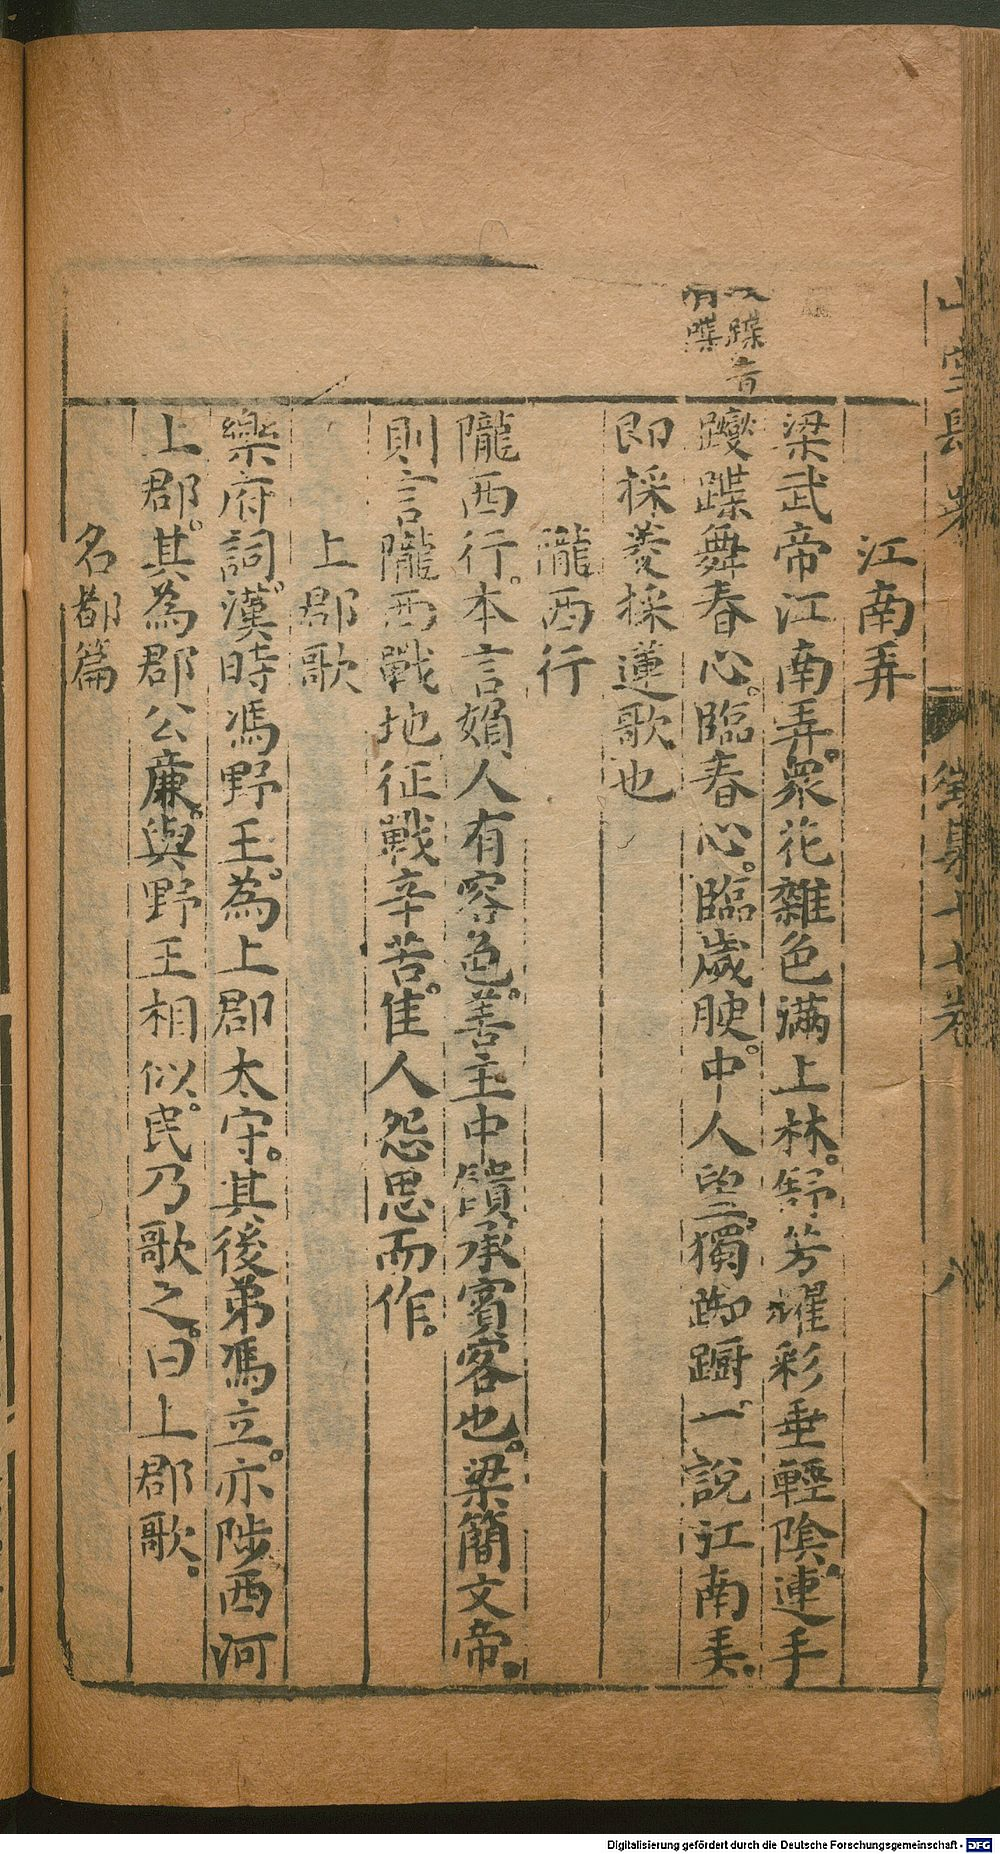 江南弄
梁武帝江南弄。衆花雜色滿上林。舒芳耀彩垂輕陰。連手
躞蹀舞春心。臨春心。臨歲腴。中人望。獨踟躕。一說江南美。
即採菱採蓮歌也
隴西行
隴西行。本言嬪人有容色。善主中饋承賓客也。梁簡文帝。
則言隴西戰地征戰辛苦。佳人怨思而作。
上郡歌
樂府詞。漢時馮野王。為上郡太守。其後弟馮立。亦陟西河
上郡。其為郡公廉。與野王相似。民乃歌之。曰上郡歌。
名都篇
山堂肆考
徵集十七卷
八
Digitalisierung gefördert durch die Deutsche Forschungsgemeinschaft - DFG